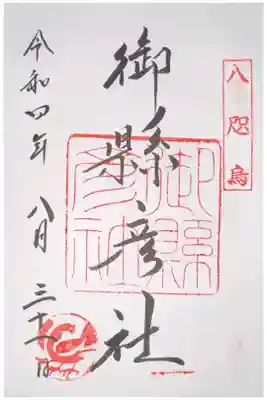 八咫烏
御縣彦社
御縣彦社
令和四年 八月